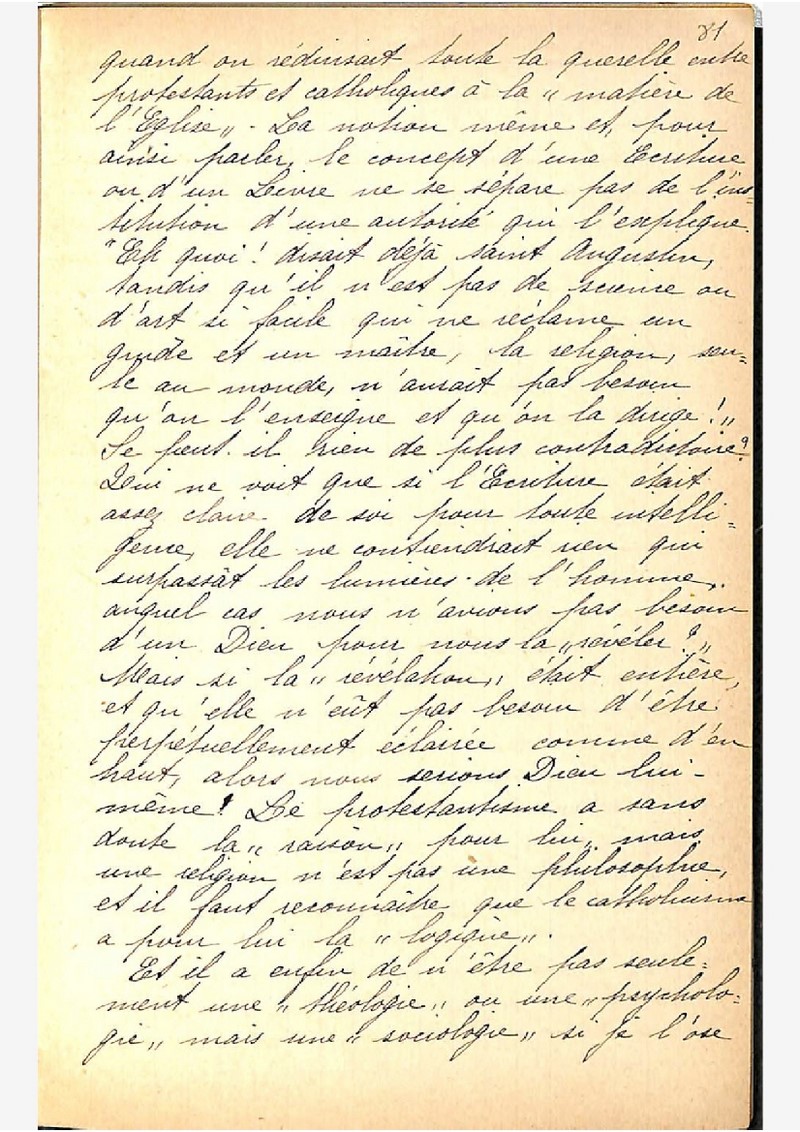 81
quand on réduisait toute la querelle entre
protestants et catholiques à la „ matière de
l'Eglise „ . La notion même et, pour
ainsi parler, le concept d'une Ecriture
ou d'un Livre ne se sépare pas de l'ins-
titution d'une autorité qui l'explique.
"Eh quoi ! disait déjà saint Augustin,
tandis qu'il n'est pas de science ou
d'art si facile qui ne réclame un
guide et un maître, la religion, seu=
le au monde, n'aurait pas besoin
qu'on l'enseigne et qu'on la dirige ! „
Se peut-il rien de plus contradictoire ?
Qui ne voit que si l'Ecriture était
assez claire de soi pour toute intelli=
gence, elle ne contiendrait rien qui
surpassât les lumières de l'homme,
auquel cas nous n'avions pas besoin
d'un Dieu pour nous la „ révéler ? „
Mais si la „ révélation „ était entière,
et qu'elle n'eût pas besoin d'être
perpétuellement éclairée comme d'en
haut, alors nous serions Dieu lui-
même ! Le protestantisme a sans
doute la „ raison „ pour lui, mais
une religion n'est pas une philosophie,
et il faut reconnaître que le catholicisme
a pour lui la „ logique „ .
Et il a enfin de n'être pas seule=
ment une „ théologie „ ou une „ psycholo=
gie „ mais une „ sociologie „ si je l'ose